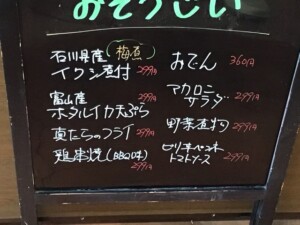 おそうじい
石川県産 梅煮
イワシ煮付 299円
富山産
ホタルイカ天ぷら 299円
真だらのフライ 299円
鶏串焼(BBQ味) 299円
おでん 360円
マカロニ
サラダ 299円
野菜煮物 299円
トマトソース 299円